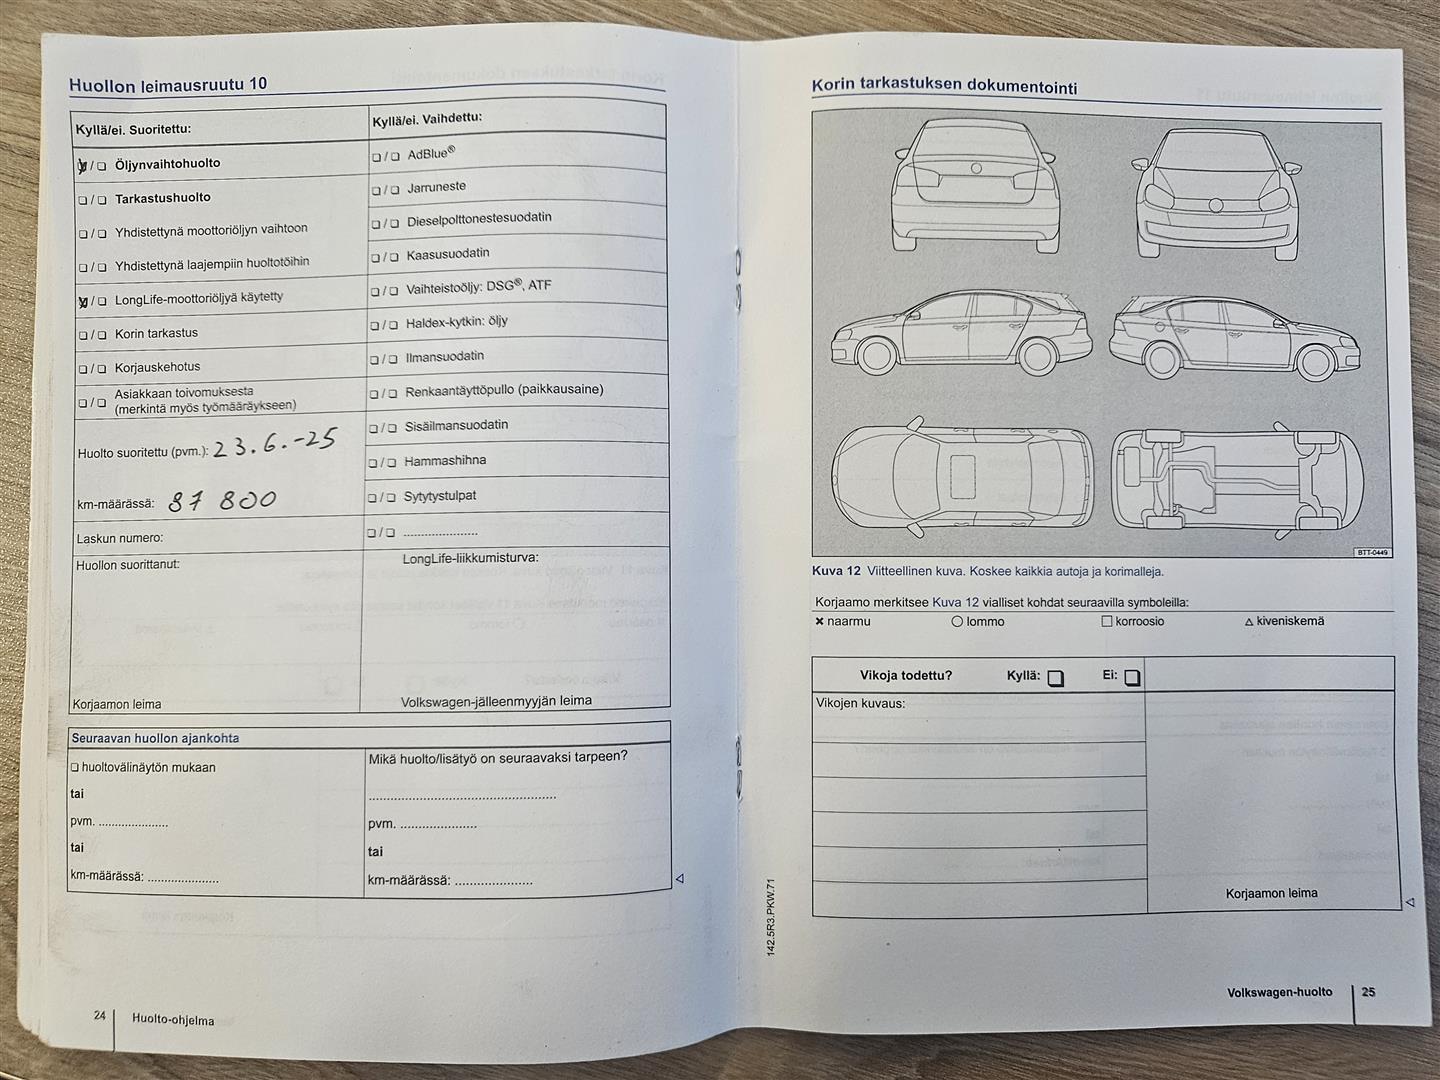 Huollon leimausruutu 10
Kyllä/ei. Suoritettu:
Öljynvaihtohuolto
Tarkastushuolto
Yhdistettynä moottoriöljyn vaihtoon
Yhdistettynä laajempiin huoltotöihin
LongLife-moottoriöljyä käytetty
Korin tarkastus
Korjauskehotus
Asiakkaan toivomuksesta
(merkintä myös työmääräykseen)
Huolto suoritettu (pvm.): 23.6.-25
km-määrässä: 87 800
Laskun numero:
Huollon suorittanut:
Korjaamon leima
Kyllä/ei. Vaihdettu:
AdBlue®
Jarruneste
Dieselpolttonestesuodatin
Kaasusuodatin
Vaihteistoöljy: DSG®, ATF
Haldex-kytkin: öljy
Ilmansuodatin
Renkaantäyttöpullo (paikkausaine)
Sisäilmansuodatin
Hammashihna
Sytytystulpat
LongLife-liikkumisturva:
Volkswagen-jälleenmyyjän leima
Seuraavan huollon ajankohta
huoltovälinäytön mukaan
tai
pvm. ......................
tai
km-määrässä: ......................
Mikä huolto/lisätyö on seuraavaksi tarpeen?
pvm. ......................
tai
km-määrässä: ......................
24 Huolto-ohjelma
Korin tarkastuksen dokumentointi
BTT-0449
Kuva 12 Viitteellinen kuva. Koskee kaikkia autoja ja korimalleja.
Korjaamo merkitsee Kuva 12 vialliset kohdat seuraavilla symboleilla:
naarmu lommo korroosio kiveniskemä
Vikoja todettu? Kyllä: Ei:
Vikojen kuvaus:
Korjaamon leima
142.5R3.PKW.71
Volkswagen-huolto 25